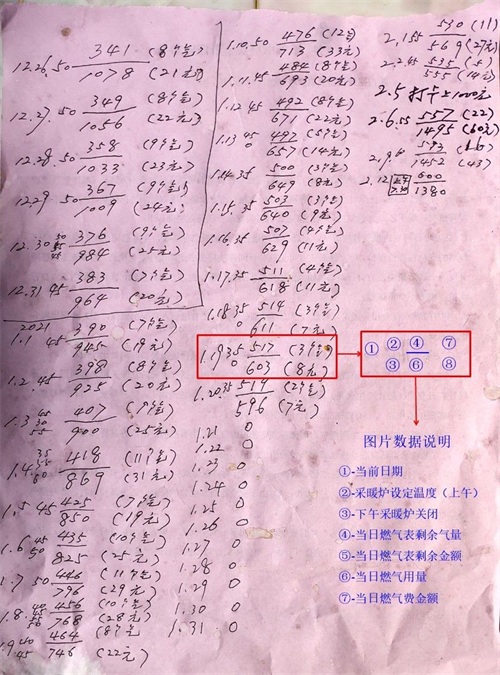 12.26.50 341/1078 (8个气) (21元)
12.27.50 349/1056 (8个气) (22元)
12.28.50 358/1033 (9个气) (23元)
12.29.50 367/1009 (9个气) (24元)
12.30 376/984 (9个气) (25元)
12.31.45 383/964 (7个气) (20元)
2021
1.1 45 390/945 (7个气) (19元)
1.2.45 398/925 (8个气) (20元)
1.3 45 55 407/900 (9个气) (25元)
1.4.35 418/869 (11个气) (31元)
1.5 45 425/850 (7个气) (19元)
1.6 45 50 435/825 (10个气) (25元)
1.7.50 446/796 (11个气) (29元)
1.8. 456/768 (10个气) (28元)
1.9 45 464/746 (8个气) (22元)
1.10.50 476/713 (12气) (33元)
1.11.45 484/693 (8个气) (20元)
1.12 45 492/671 (8个气) (22元)
1.13 45 0 497/657 (5个气) (14元)
1.14.35 500/649 (3个气) (8元)
1.15.35 503/640 (3个气) (9元)
1.16.35 507/629 (4个气) (11元)
1.17.35 511/618 (4个气) (11元)
1.18.35 0 514/611 (3个气) (7元)
1.19 35 0 517/603 (3个气) (8元)
1.20.35 519/596 (2个气) (7元)
1.21 0
1.22 0
1.23 0
1.24 0
1.25 0
1.26 0
1.27 0
1.28 0
1.29 0
1.30 0
1.31 0
2.1 55 530/569 (11) (27元)
2.2.45 535/555 (5) (14元)
2.5 打卡 1000元
2.6.55 557/1495 (22) (60元)
2.9. 573/1452 (16) (43)
2.12 600/1380
① ② ④ ⑦
③ ⑥ ⑧
图片数据说明
①-当前日期
②-采暖炉设定温度（上午）
③-下午采暖炉关闭
④-当日燃气表剩余气量
⑤-当日燃气表剩余金额
⑥-当日燃气用量
⑦-当日燃气费金额